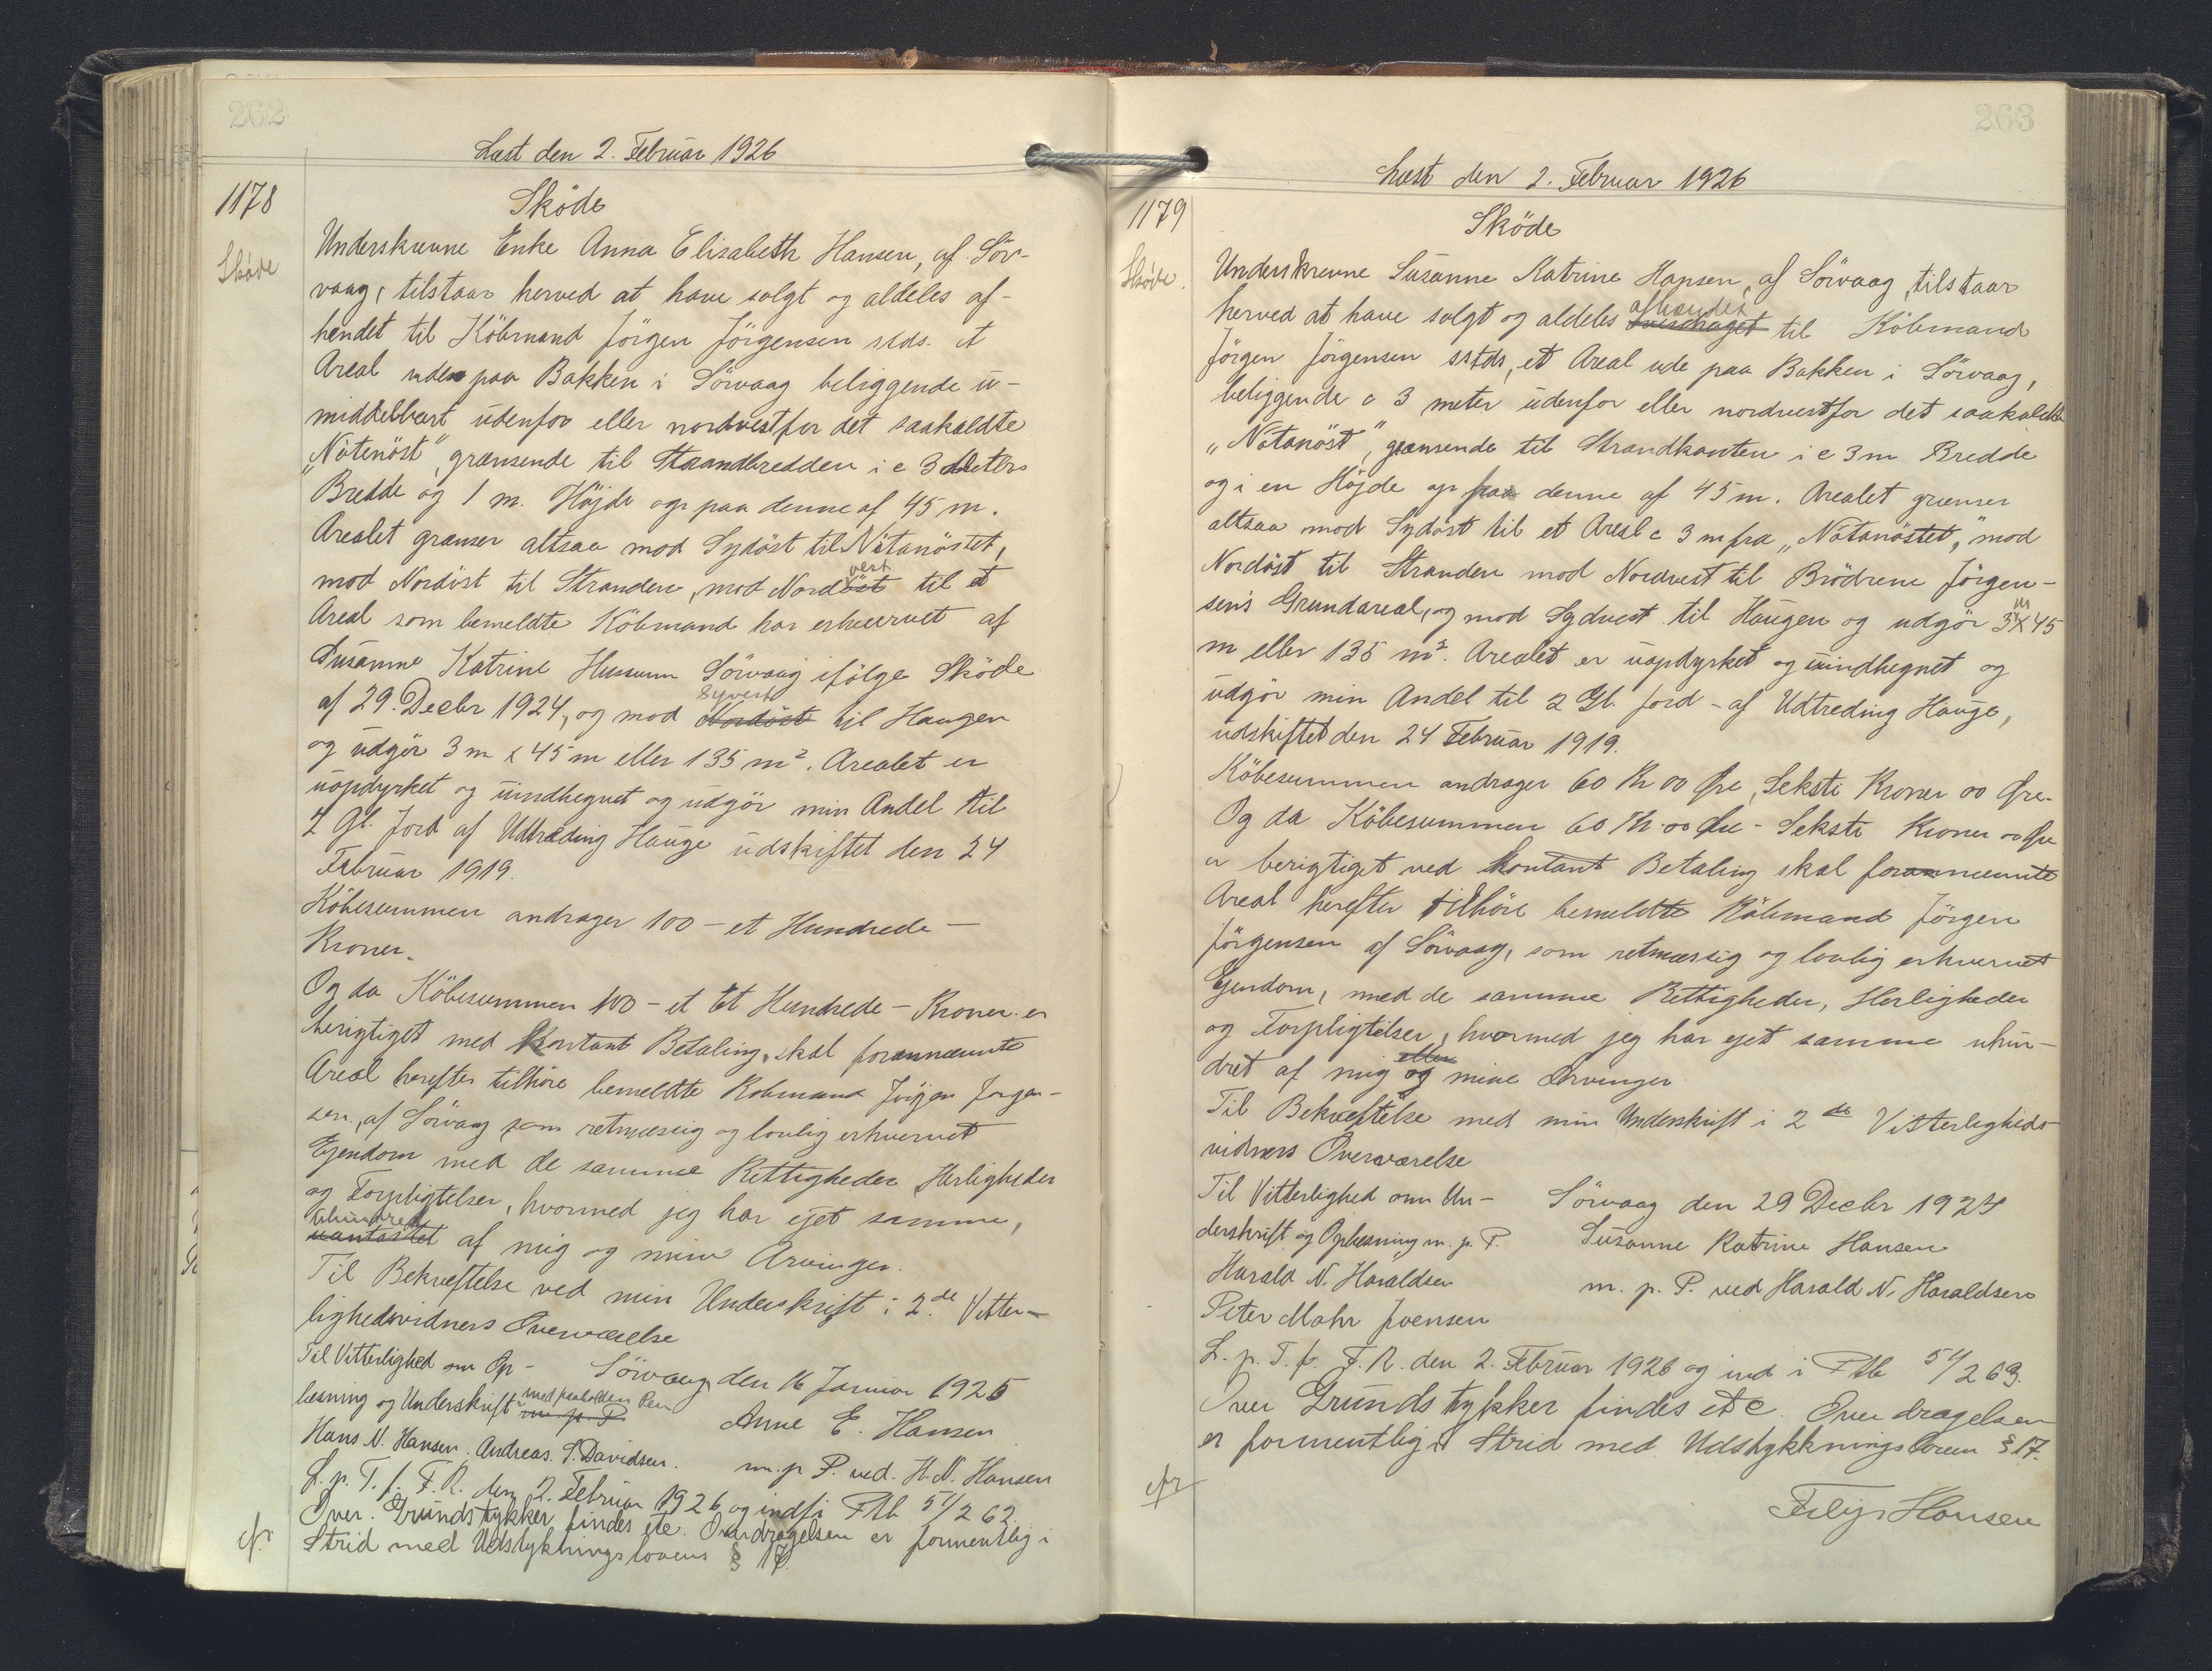 262
Læst den 2. Februar 1926
1178
Sköde
Sköde
Underskrevne Enke Anna Elisabeth Hansen, af Sör-
vaag, tilstaar herved at have solgt og aldeles af-
hendet til Köbmand Jörgen Jörgensen sstds. et
Areal uden paa Bakken i Sörvaag beliggende u-
middelbart udenfor eller nordvestfor det saakaldte
„Nótenöst", grænsende til Strandbredden i c 3 Meters
Bredde og 1 m. Höjde op paa denne af 45 m.
Arealet grænser altsaa mod Sydöst til Nótanöstet,
mod Nordöst til Stranden, mod Nordöst vest til et
Areal som bemeldte Köbmand har erhvervet af
Susanne Katrine Hansen Sörvaag ifölge Sköde
af 29. Decbr 1924, og mod Nordöst Syvest til Haugen
og udgör 3 m x 45 m eller 135 m². Arealet er
uopdyrket og uindhegnet og udgör min Andel til
2 Gl. Jord af Udtræding Hauge udskiftet den 24
Februar 1919.
Köbesummen andrager 100 - et Hundrede -
Kroner.
Og da Köbesummen 100 - et Et Hundrede - Kroner er
berigtiget med Kontant Betaling, skal forannævnte
Areal herefter tilhöre bemeldte Kobmand Jörgen Jörgen-
sen, af Sörvaag som retmæssig og lovlig erhvervet
Ejendom med de samme Rettigheder Herligheder
og Forpligtelser, hvormed jeg har ejet samme,
uantastet uhindred af mig og mine Arvinger.
Til Bekræftelse ved min Underskrift i 2de Vitter-
lighedsvidners Overværelse
Til Vitterlighed om Op- Sörvaag den 16 Januar 1925
læsning og Underskrift m. p. P. med paaholden Pen Anne E. Hansen
Hans N. Hansen. Andreas. S. Davidsen. m. p P. ved. H. N. Hansen
L. p. T. f. F. R. den 2. Februar 1926 og indf i Ptb 51/262.
Over Grundstykker findes etc. Overdragelsen er formentlig i
cfr. Strid med Udstykningslovens § 17.
263
Læst den 2. Februar 1926
1179
Sköde
Sköde.
Underskrevne Susanne Katrine Hansen, af Sörvaag, tilstaar
herved at have solgt og aldeles overdraget afhændet til Köbmand
Jörgen Jörgensen sstds, et Areal ude paa Bakken i Sörvaag,
beliggende c 3 meter udenfor eller nordvestfor det saakaldte
„Nótanöst", grænsende til Strandkanten i c 3 m Bredde
og i en Höjde op paa denne af 45 m. Arealet grænser
altsaa mod Sydöst til et Areal c 3 m fra „Nótanöstet," mod
Nordöst til Stranden mod Nordvest til Brödrene Jörgen-
sen's Grundareal, og mod Sydvest til Haugen og udgör 3 m x 45
m eller 135 m². Arealet er uopdyrket og uindhegnet og
udgör min Andel til 2 Gl. Jord - af Udtreding Hauge,
udskiftet den 24 Februar 1919.
Köbesummen andrager 60 Kr 00 Øre, Seksti Kroner 00 Øre.
Og da Köbesummen 60 Kr 00 Øre - Seksti Kroner 00 Øre
er berigtiget ved Kontant Betaling skal forannævnte
Areal herefter tilhöre bemeldte Köbmand Jörgen
Jörgensen af Sörvaag, som retmæssig og lovlig erhvervet
Ejendom, med de samme Rettigheder, Herligheder
og Forpligtelser, hvormed jeg har ejet samme uhin-
dret af mig eller og mine Arvinger.
Til Bekræftelse med min Underskrift i 2 de Vitterligheds-
vidners Overværelse
Til Vitterlighed om Un- Sörvaag den 29 Decbr 1924
derskrift og Oplæsning m. p. P. Susanne Katrine Hansen
Harald N. Haraldsen m. p. P. ved Harald N. Haraldsen
Peter Mohr Joensen
L. p. T. f. F. R. den 2. Februar 1926 og ind i Ptb 51/263.
Over Grundstykker findes etc. Overdragelsen
er formentlig i Strid med Udstykningsloven § 17.
cfr
Filip Hansen